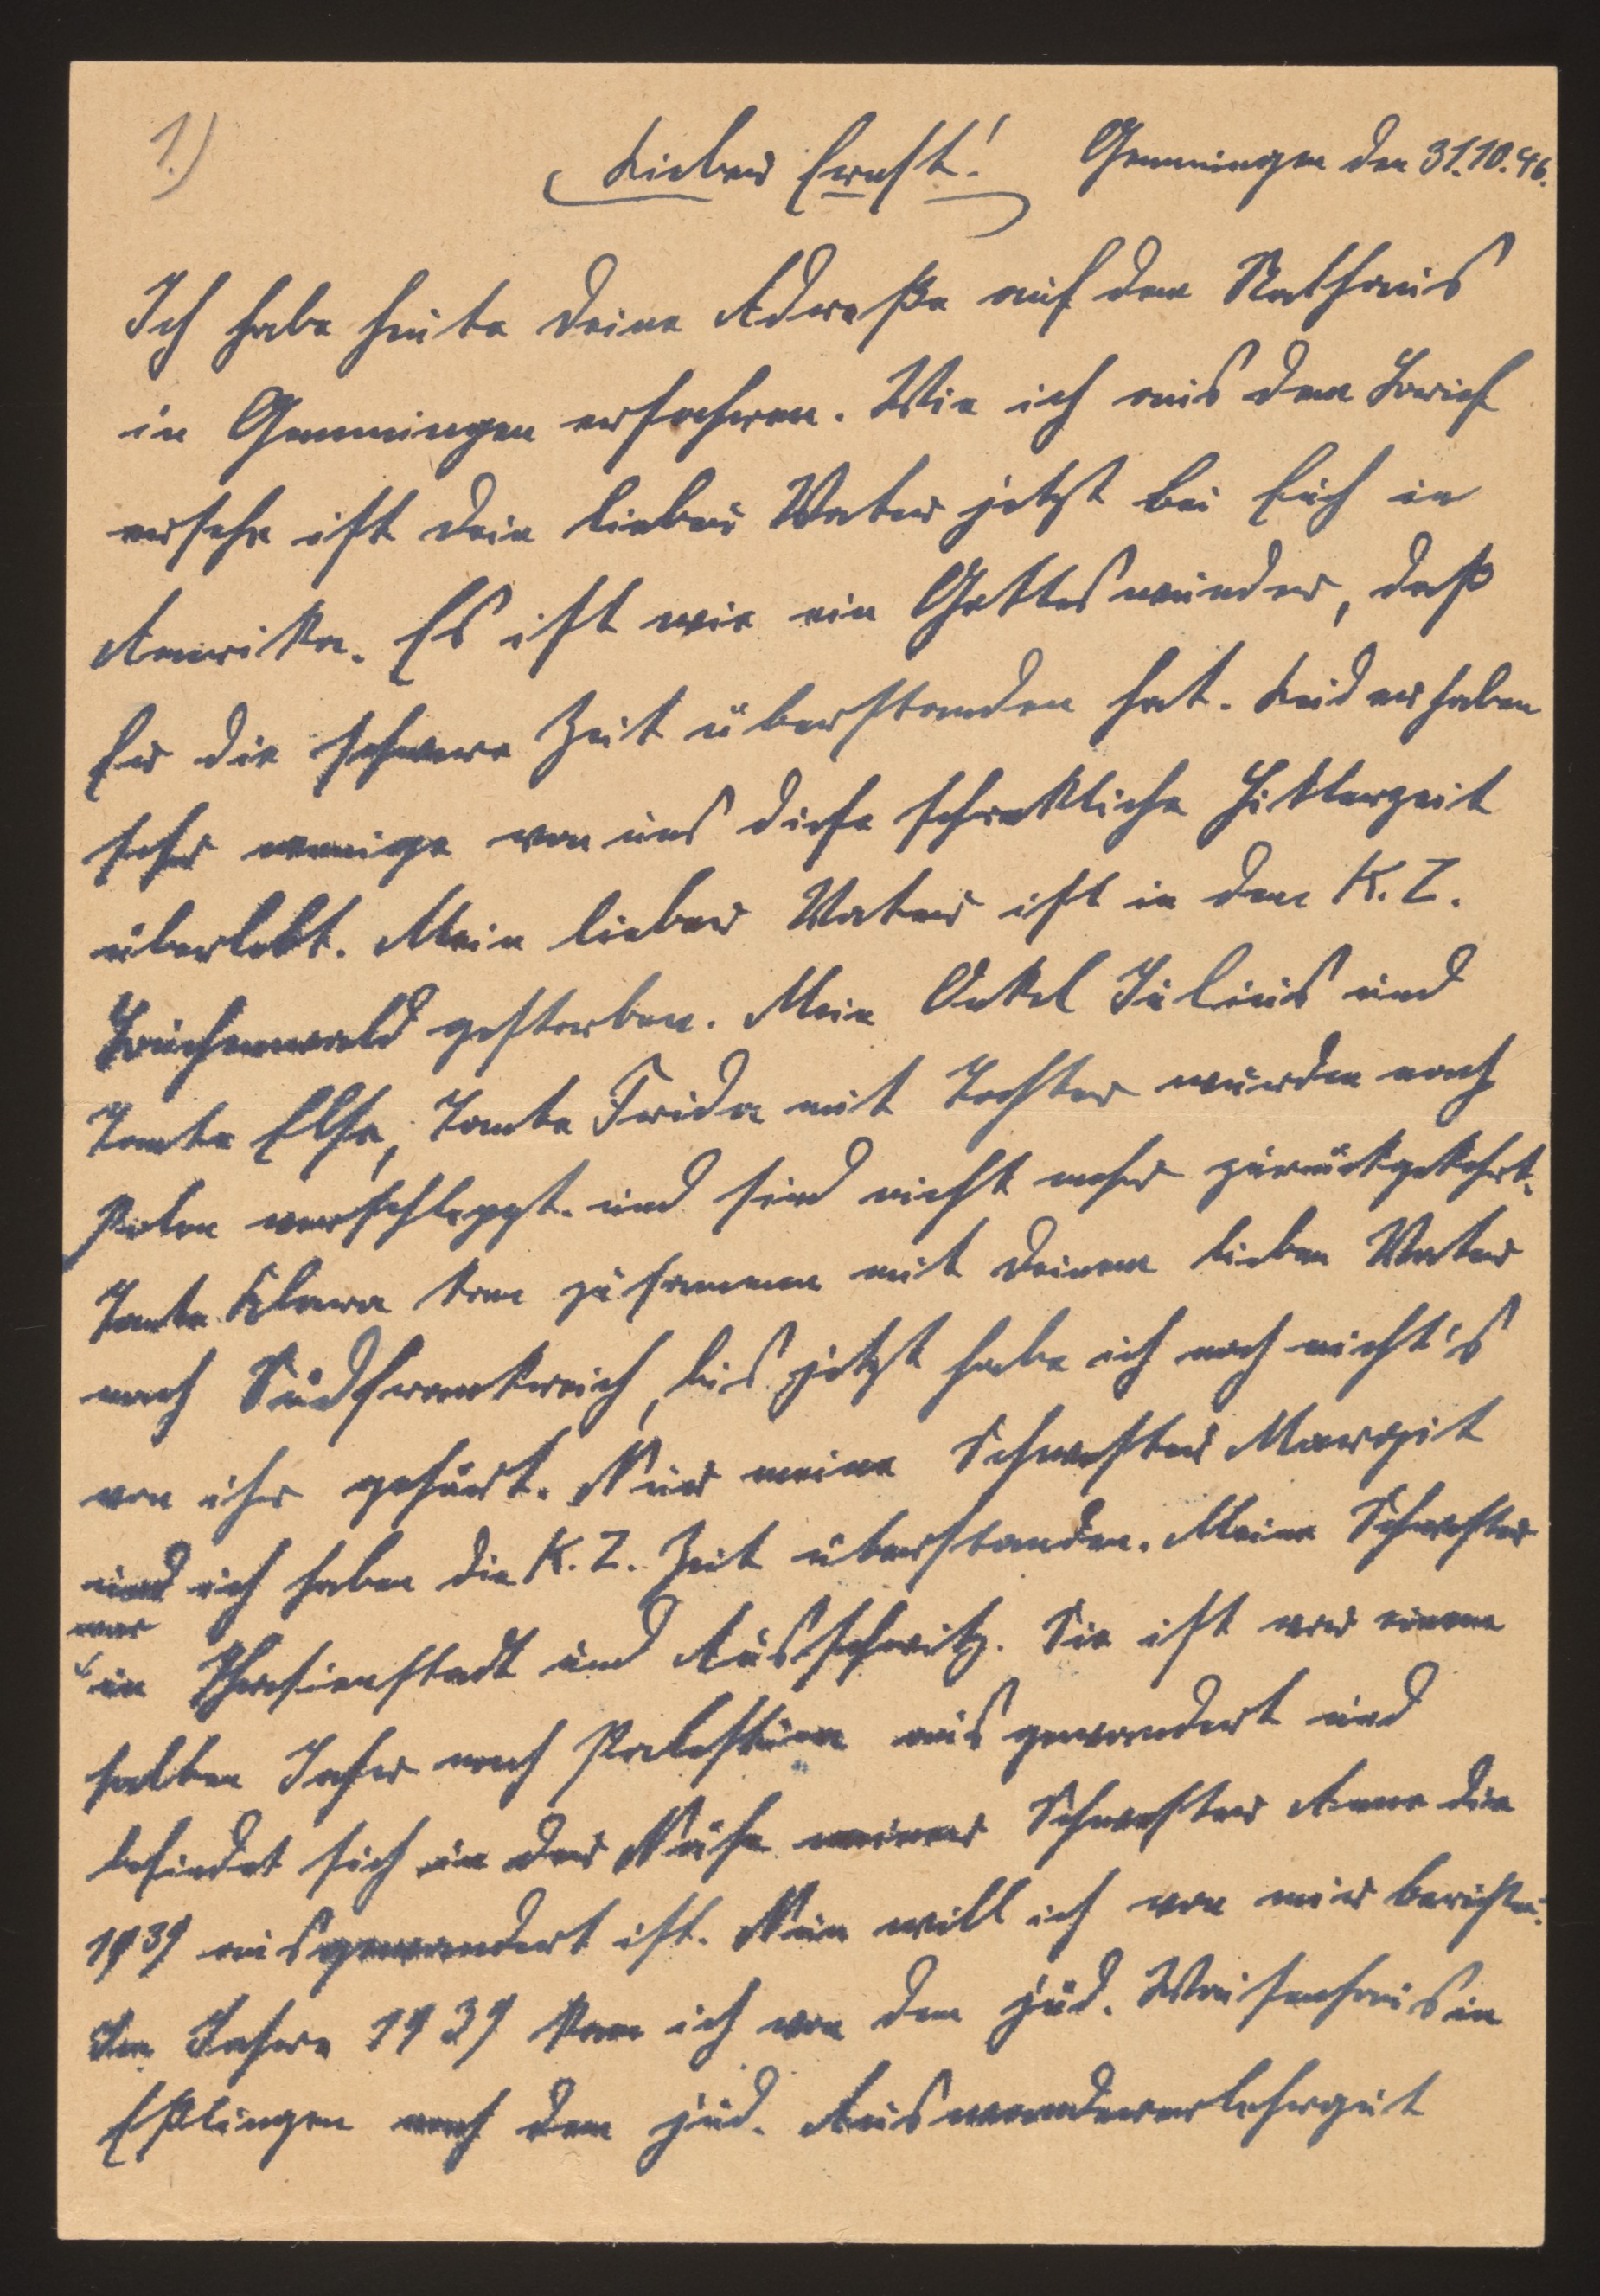 1.)
Lieber Ernst! Gemmingen den 31.10.46.
Ich habe heute Deine Adreße auf dem Rathaus
in Gemmingen erfahren. Wie ich aus dem Brief
ersehe ist Dein lieber Vater jetzt bei Euch in
Amerika. Es ist wie ein Gotteswunder, daß
Er die schwere Zeit überstanden hat. Leider haben
sehr wenige von uns diese schrekliche Hitlerzeit
überlebt. Mein lieber Vater ist in dem K.Z.
Buchenwald gestorben. Mein Onkel Julius und
Tante Else, Tante Frida mit Tochter wurden nach
Polen verschleppt. und sind nicht mehr zurückgekehrt.
Tante Klara kam zusammen mit Deinem lieben Vater
nach Südfrankreich, bis jetzt habe ich noch nicht's
von ihr gehört. Nur meine Schwester Margit
und ich haben die K.Z. Zeit überstanden. Meine Schwester
war
in Theresienstadt und Ausschwitz. Sie ist vor einem
halben Jahr nach Palestina ausgewandert und
befindet sich in der Nähe meiner Schwester Anna die
1939 ausgewandert ist. Nun will ich von mir berichten.
Im Jahre 1939 kam ich von dem jüd. Waisenhaus in
Eßlingen nach dem jüd. Auswandererlehrgut